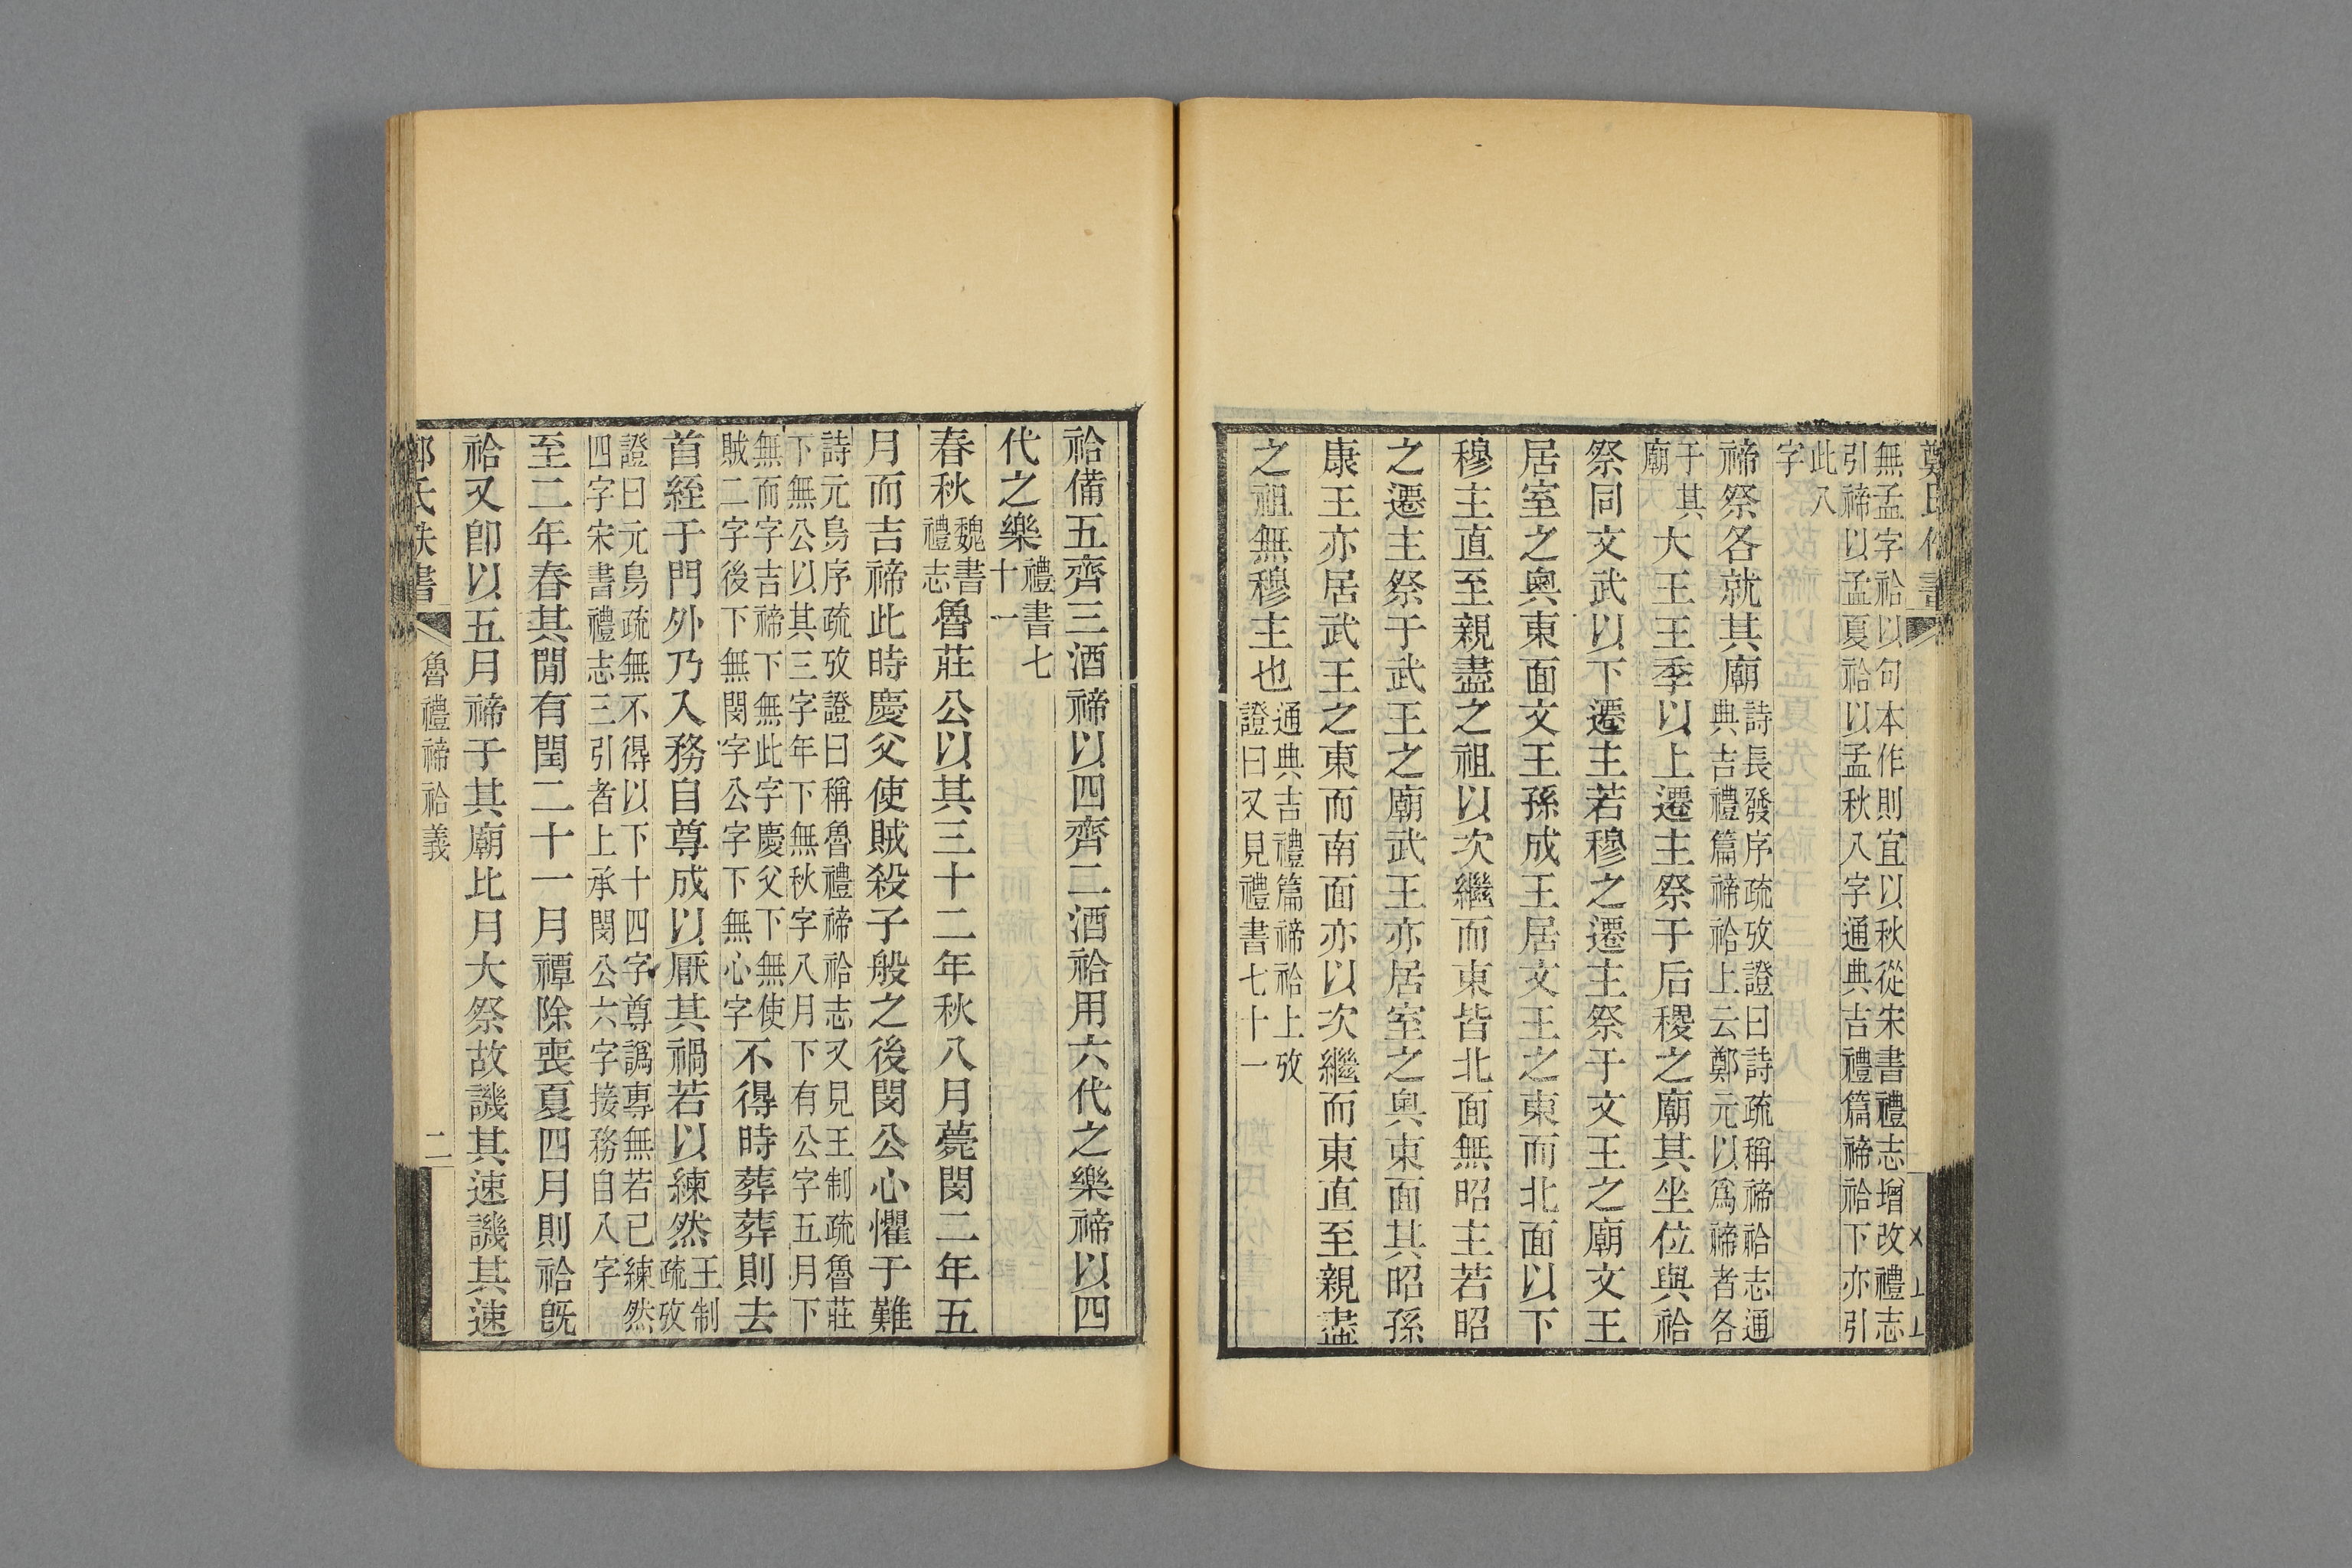 無孟字祫以句本作則宜以秋從宋書禮志增改禮志
引禘以孟夏祫以孟秋八字通典吉禮篇禘祫下亦引
此八
字
禘祭各就其廟
詩長發序疏攷證曰詩疏稱禘祫志通
典吉禮篇禘祫上云鄭元以爲禘者各
于其
廟
大王王季以上遷主祭于后稷之廟其坐位與祫
祭同文武以下遷主若穆之遷主祭于文王之廟文王
居室之奧東面文王孫成王居文王之東而北面以下
穆主直至親盡之祖以次繼而東皆北面無昭主若昭
之遷主祭于武王之廟武王亦居室之奧東面其昭孫
康王亦居武王之東而南面亦以次繼而東直至親盡
之祖無穆主也
通典吉禮篇禘祫上攷
證曰又見禮書七十一
祫備五齊三酒禘以四齊二酒祫用六代之樂禘以四
代之樂
禮書七
十一
春秋
魏書
禮志
魯莊公以其三十二年秋八月薨閔二年五
月而吉禘此時慶父使賊殺子般之後閔公心懼于難
詩元鳥序疏攷證曰稱魯禮禘祫志又見王制疏魯莊
下無公以其三字年下無秋字八月下有公字五月下
無而字吉禘下無此字慶父下無使
賊二字後下無閔字公字下無心字
不得時葬葬則去
首絰于門外乃入務自尊成以厭其禍若以練然
王制
疏攷
證曰元鳥疏無不得以下十四字尊譌專無若已練然
四字宋書禮志三引者上承閔公六字接務自八字
至二年春其閒有閏二十一月禫除喪夏四月則祫旣
祫又卽以五月禘于其廟比月大祭故譏其速譏其速
魯禮禘祫義
二